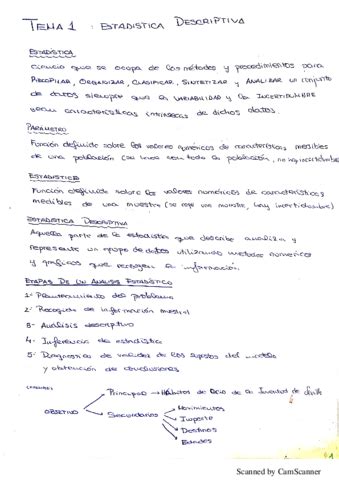 TEMA 1 : ESTADISTICA DESCRIPTIVA
ESTADISTICA
Ciencia que se ocupa de los métodos y procedimientos para
RECOPILAR, ORGANIZAR, CLASIFICAR, SINTETIZAR Y ANALIZAR un conjunto
de datos siempre que la VARIABILIDAD y la INCERTIDUMBRE
sean características intrínsecas de dichos datos.
PARAMETRO
Función definida sobre los valores numéricos de características medibles
de una población (se usa toda la población, no hay incertidumbre)
ESTADISTICO
Función definida sobre los valores numéricos de características
medibles de una muestra (se coge una muestra, hay incertidumbre)
ESTADISTICA DESCRIPTIVA
Aquella parte de la estadística que describe analiza y
representa un grupo de datos utilizando metodos numericos
y gráficos que recogen la información.
ETAPAS DE UN ANALISIS ESTADÍSTICO
1- Planteamiento del problema
2- Recogida de información muestral
3- Análisis descriptivo
4- Inferencia de estadística
5- Diagnostico de validez de los del modelo
y obtención de conclusiones
OBJETIVO
Principal → Hábitos de Ocio de la Juventud de
Secundarios
Movimientos
Importe
Destinos
Edades
1
Scanned by CamScanner